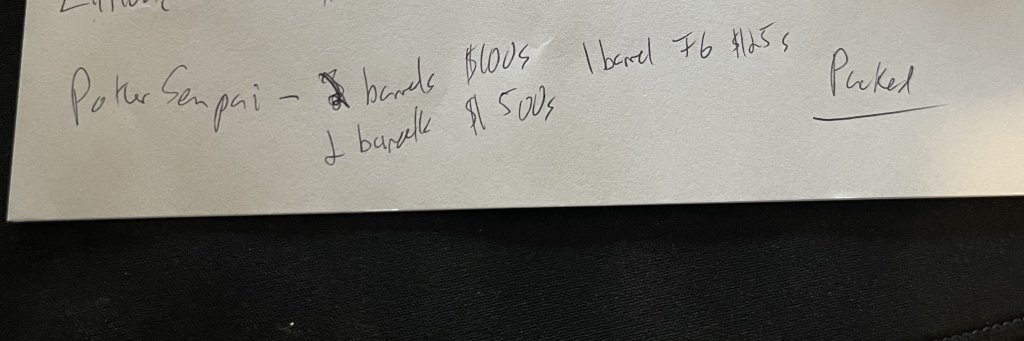 PokerSenpai - 2 barrels $100s 1 barrel F6 $125s Packed
1 barrels $500s